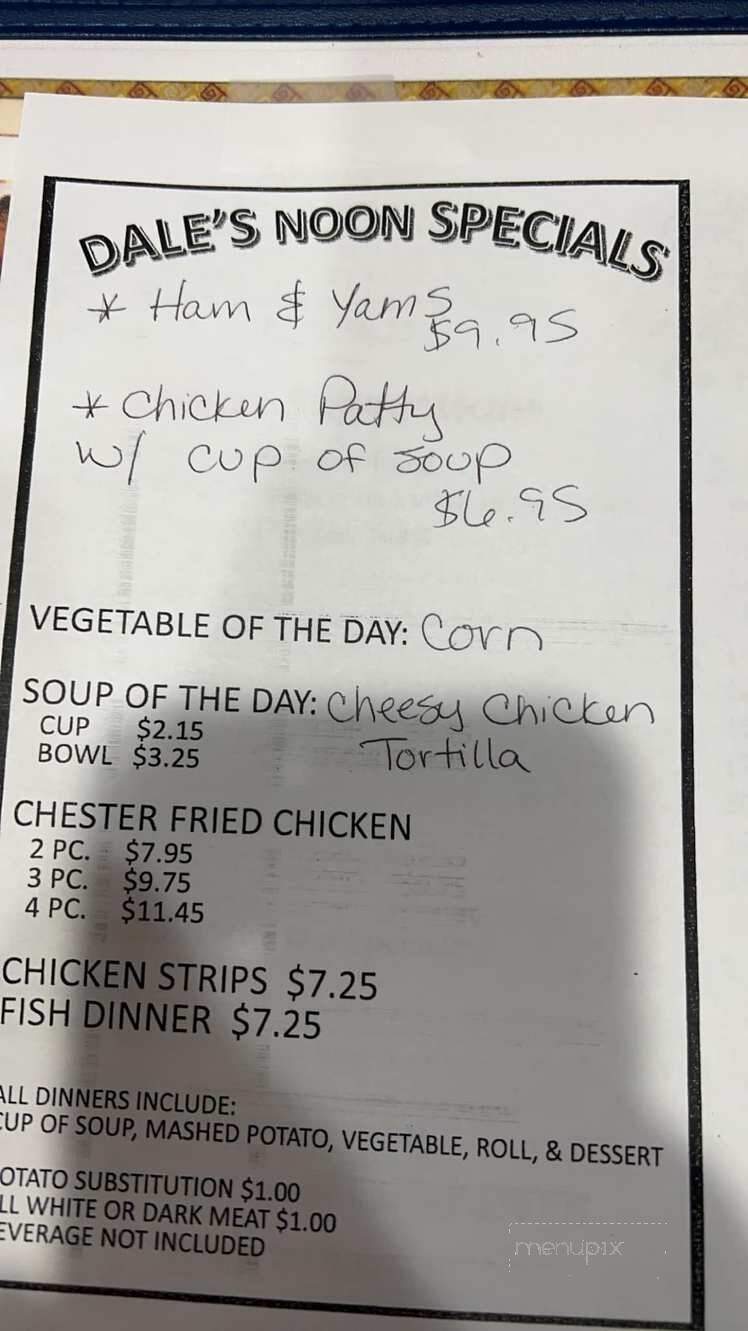 DALE'S NOON SPECIALS
* Ham & Yams
$9.95
* Chicken Patty
w/ cup of soup
$6.95
VEGETABLE OF THE DAY: Corn
SOUP OF THE DAY: Cheesy Chicken
Tortilla
CUP $2.15
BOWL $3.25
CHESTER FRIED CHICKEN
2 PC. $7.95
3 PC. $9.75
4 PC. $11.45
CHICKEN STRIPS $7.25
FISH DINNER $7.25
ALL DINNERS INCLUDE:
CUP OF SOUP, MASHED POTATO, VEGETABLE, ROLL, & DESSERT
OTATO SUBSTITUTION $1.00
LL WHITE OR DARK MEAT $1.00
EVERAGE NOT INCLUDED
menupix